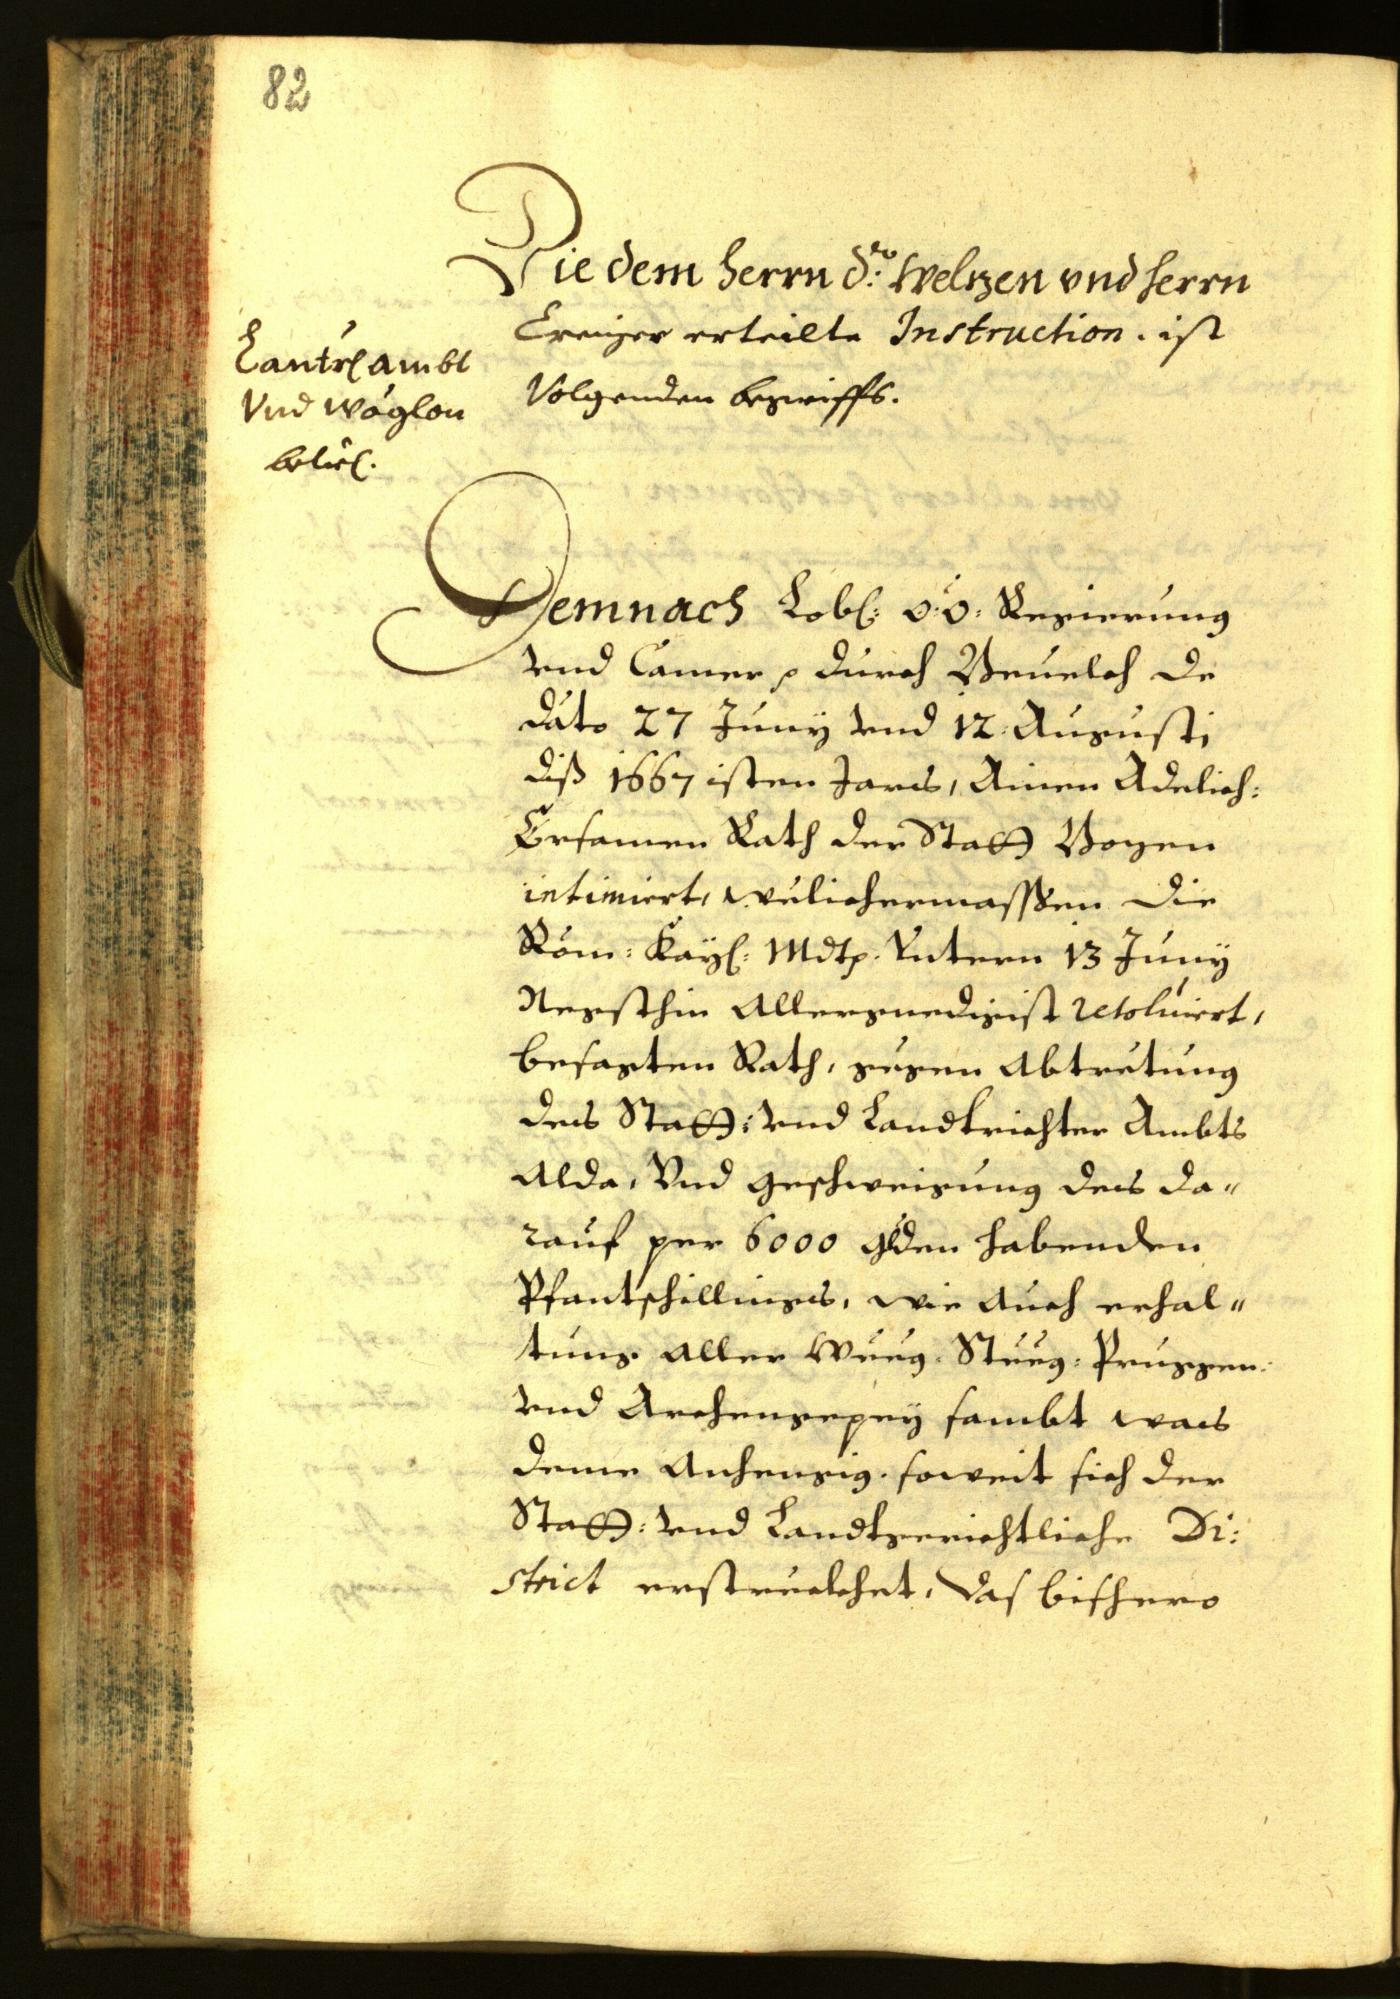 82
Die dem herrn d:ro Welzen vnd herrn
Creizer erteilte Instruction. ist
Volgenden begriffs.
Lantrl ambt
Vnd wöglon
betrl.
Demnach Lobl: o: ö: Regierung
vnd Camer p durch Beuelch de
dato 27 Juny vnd 12. Augusti
diß 1667 isten Jars, Ainen Adelich:
Ersamen Rath der Statt Bozen
intimiert, welichermassen die
Röm: Kayl: Mdtp. Vntern 13 Juny
Negsthin Allergnedigist resoluiert,
besagten Rath, gegen Abtretung
des Statt: vnd Landtrichter Ambts
Alda, Vnd geschweigung des da„
rauf per 6000 glden habenden
Pfantschillings, wie Auch erhal„
tung Aller Weeg: Steeg: Pruggen:
vnd Archengepey sambt was
deme Anhengig. soweit sich der
Statt: vnd Landtgerichtliche Di:
strict erstrekhet, das bishero